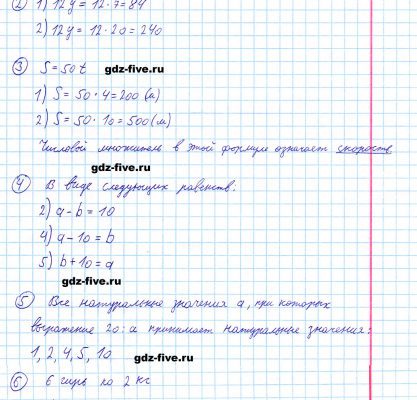 ② 1) 12y = 12·7 = 84
2) 12y = 12·20 = 240
③ S = 50t gdz-five.ru
1) S = 50·4 = 200 (м)
2) S = 50·10 = 500 (м)
Числовой множитель в этой формуле означает скорость
gdz-five.ru
④ В виде следующих равенств:
2) a - b = 10
4) a - 10 = b
5) b + 10 = a
gdz-five.ru
⑤ Все натуральные значения a, при которых
выражение 20 : a принимает натуральные значения:
1, 2, 4, 5, 10 gdz-five.ru
⑥ 6 гирь по 2 кг